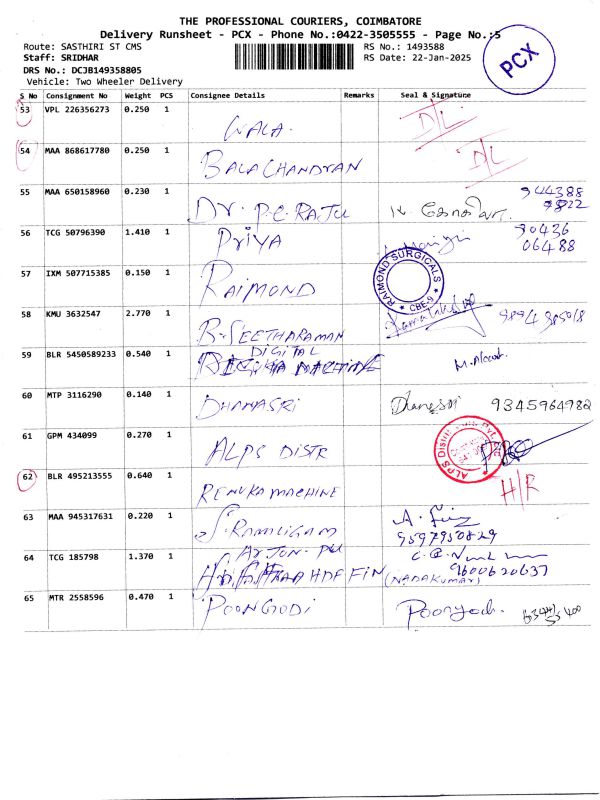 THE PROFESSIONAL COURIERS, COIMBATORE
Delivery Runsheet - PCX - Phone No.:0422-3505555 - Page No.:5
Route: SASTHIRI ST CMS
RS No.: 1493588
PCX
Staff: SRIDHAR
RS Date: 22-Jan-2025
DRS No.: DCJB149358805
Vehicle: Two Wheeler Delivery
S No Consignment No Weight PCS Consignee Details Remarks Seal & Signature
53 VPL 226356273 0.250 1 WALA. D/L
54 MAA 868617780 0.250 1 BALACHANDRAN D/L
55 MAA 650158960 0.230 1 Dr. P.C. RAJU 944388
9822
56 TCG 50796390 1.410 1 PRIYA 90436
06488
57 IXM 507715385 0.150 1 RAIMOND RAIMOND SURGICALS CBE-9
58 KMU 3632547 2.770 1 B. SEETHARAMAN
59 BLR 5450589233 0.540 1 DIGITAL
60 MTP 3116290 0.140 1 DHANASRI 9345964982
61 GPM 434099 0.270 1 ALPS DISTR
62 BLR 495213555 0.640 1 RENUKA MACHINE H/R
63 MAA 945317631 0.220 1 S. RAMLIGAM 9597950829
64 TCG 185798 1.370 1 HDF FIN (NANDAKUMAR) 9600620637
65 MTR 2558596 0.470 1 POONGODI